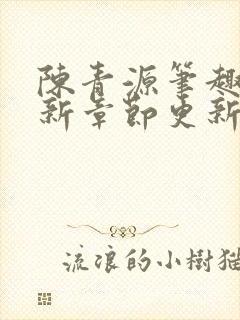 陳青源筆趣
新章節更新
流浪的小樹猫